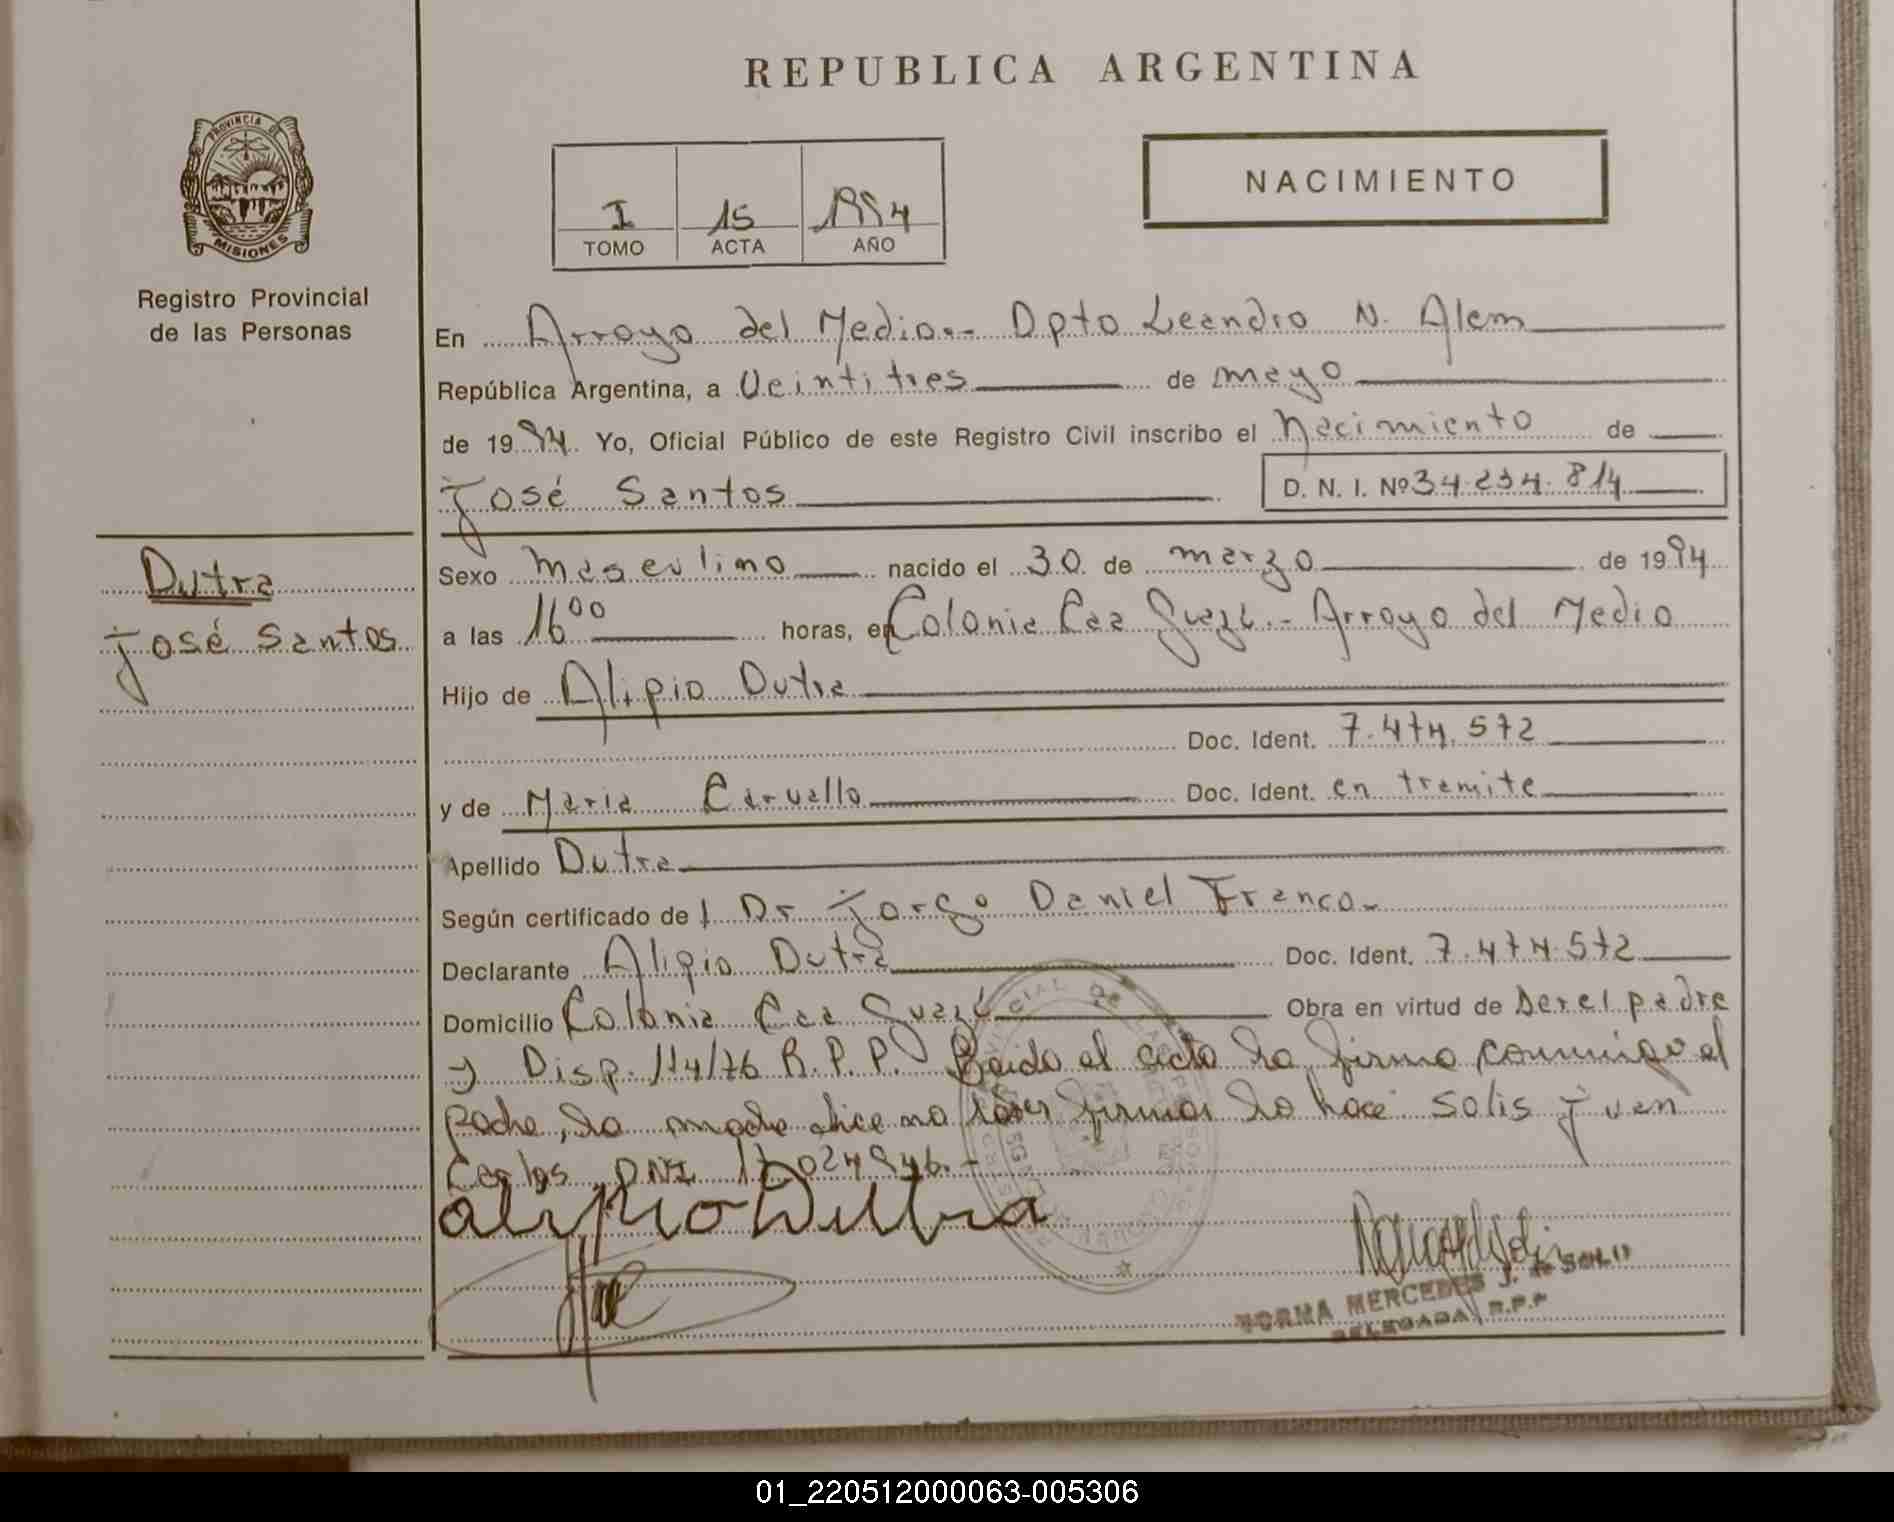 REPUBLICA ARGENTINA
PROVINCIA DE
MISIONES
Registro Provincial
de las Personas
I 15 1994
TOMO ACTA AÑO
NACIMIENTO
En Arroyo del Medio.- Dpto Leandro N. Alem
República Argentina, a Veintitres de mayo
de 1994. Yo, Oficial Público de este Registro Civil inscribo el Nacimiento de
José Santos D. N. I. Nº 34.234.814
Dutra
José Santos
Sexo Masculino nacido el 30 de marzo de 1994
a las 16 00 horas, en Colonia Caa Guazú.- Arroyo del Medio
Hijo de Alipio Dutra
Doc. Ident. 7.474.572
y de Maria Carvallo Doc. Ident. en tramite
Apellido Dutra
Según certificado de Dr Jorge Daniel Franco.-
Declarante Alipio Dutra Doc. Ident. 7.474.572
Domicilio Colonia Caa Guazú Obra en virtud de Ser el padre
y Disp. 114/76 R.P.P. Leida el acta la firma conmigo el
padre, la madre dice no saber firmar lo hace Solis Juan
Carlos DNI 17.024.946.-
alipio Dutra
NORMA MERCEDES J. de SOLIS
DELEGADA R.P.P
01_220512000063-005306